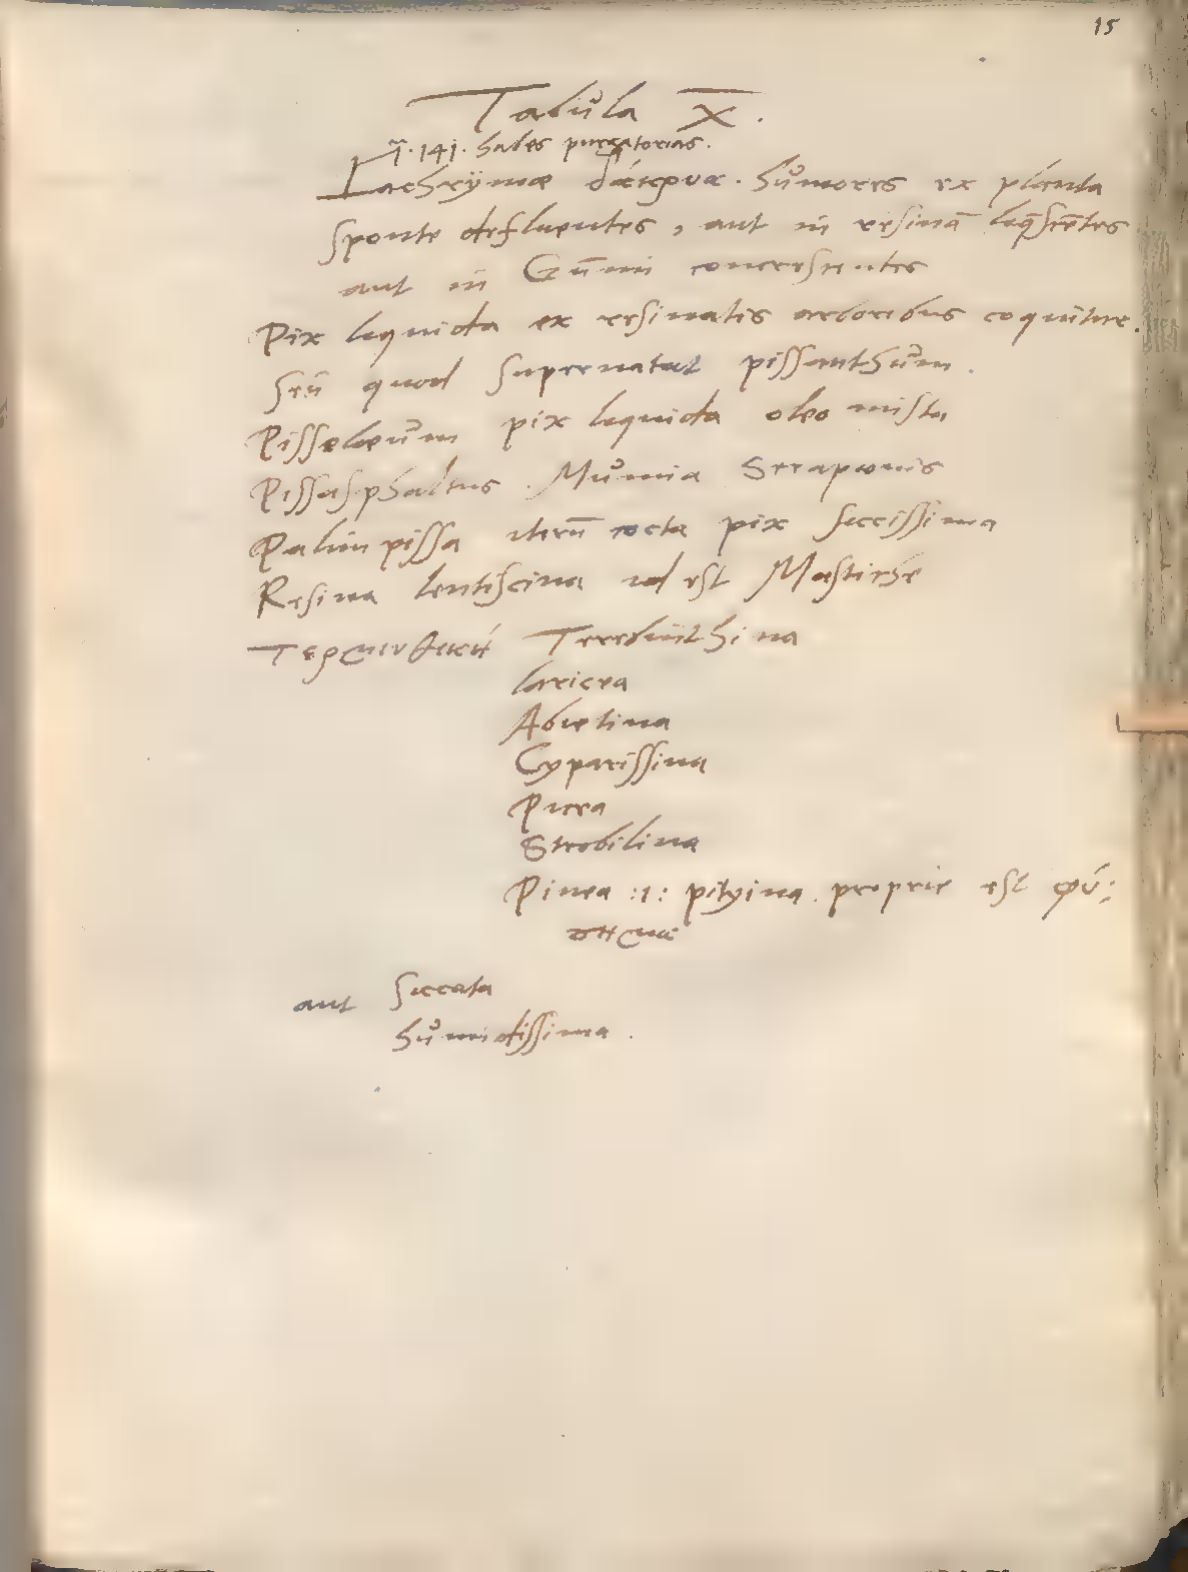 15
Tabula X.
141. habes purgatorias.
Lachrymæ δάκρυα. humores ex planta
sponte defluentes, aut in resinā liqscētes
aut in Gūmi concrescentes
Pix liquida ex resinatis arboribus coquitur.
Serū quod supernatat pissanthum.
Pisselæum pix liquida oleo mista
Pissasphaltus. Mumia Serapionis
Palimpissa iterū cocta pix siccissima
Resina lentiscina id est Mastiche
Τερμινθικὴ Terebinthina
laricea
Abietina
Cyparissina
Picea
Strobilina
Pinea :i: pityina. proprie est φύ:
σημα
aut siccata
humidissima.